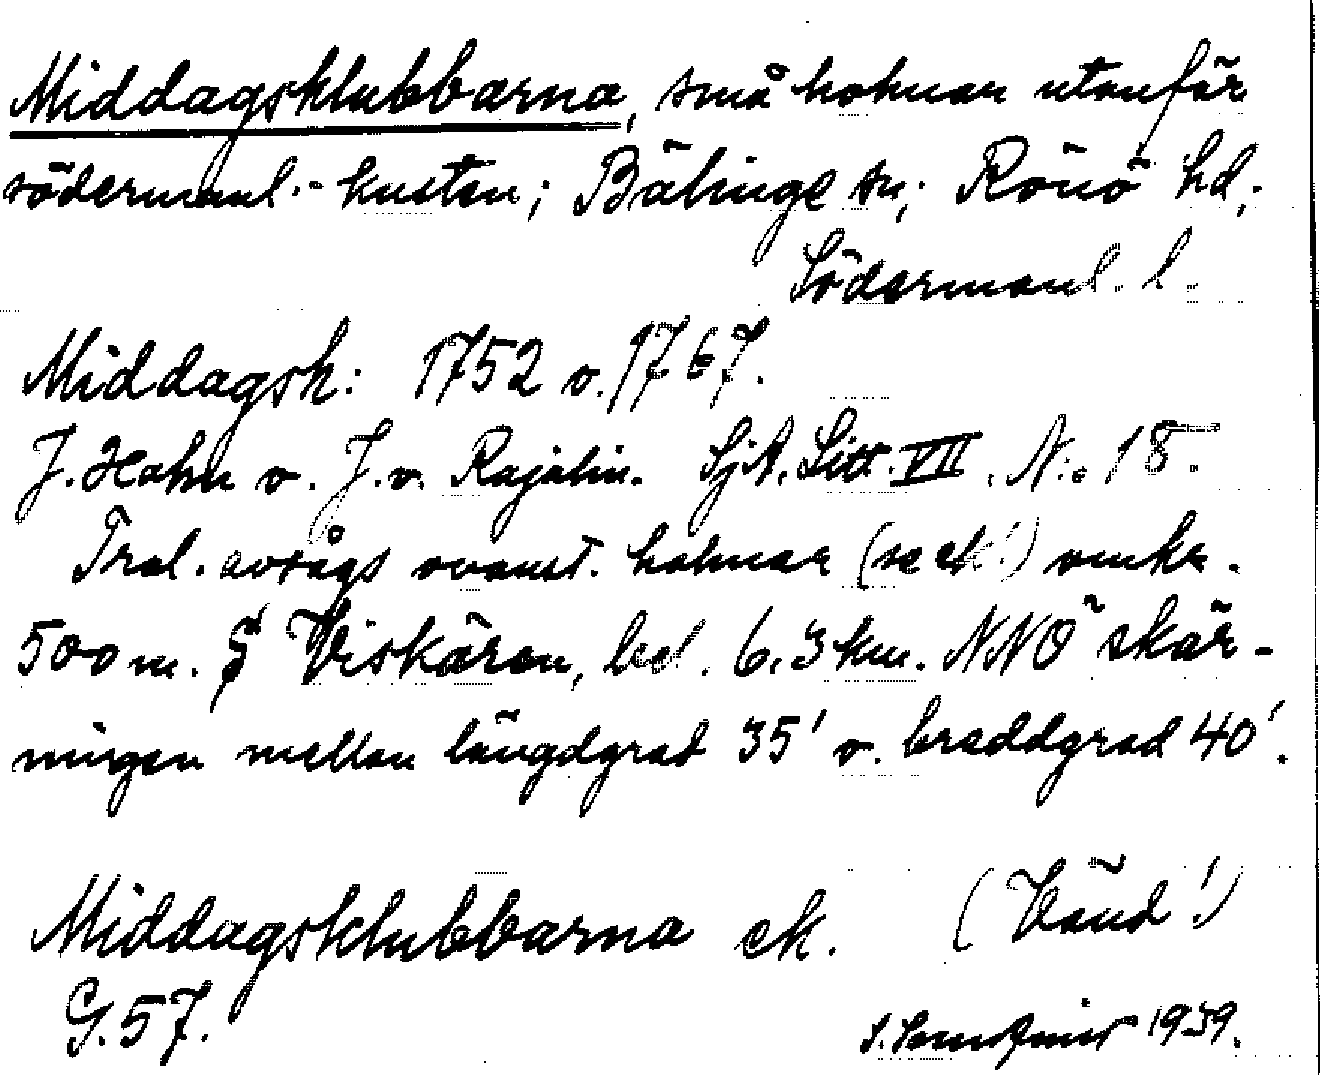 Middagsklubbarna, små holmar utanför
södermanl.- kusten; Bälinge sn; Rönö hd;
Södermanl. l.
Middagsk: 1752 o. 1767.
J. Hahn o. J. v. Rajalin. SjA. Litt. VII. N:o 18.
Trol. avsågs ovanst. holmar (se ek!) omkr.
500 m. S Viskären, bel. 6.3 km. NNÖ skär-
ningen mellan längdgrad 35' o. breddgrad 40'.
Middagsklubbarna ek. (Vänd!)
G.57.
1939.